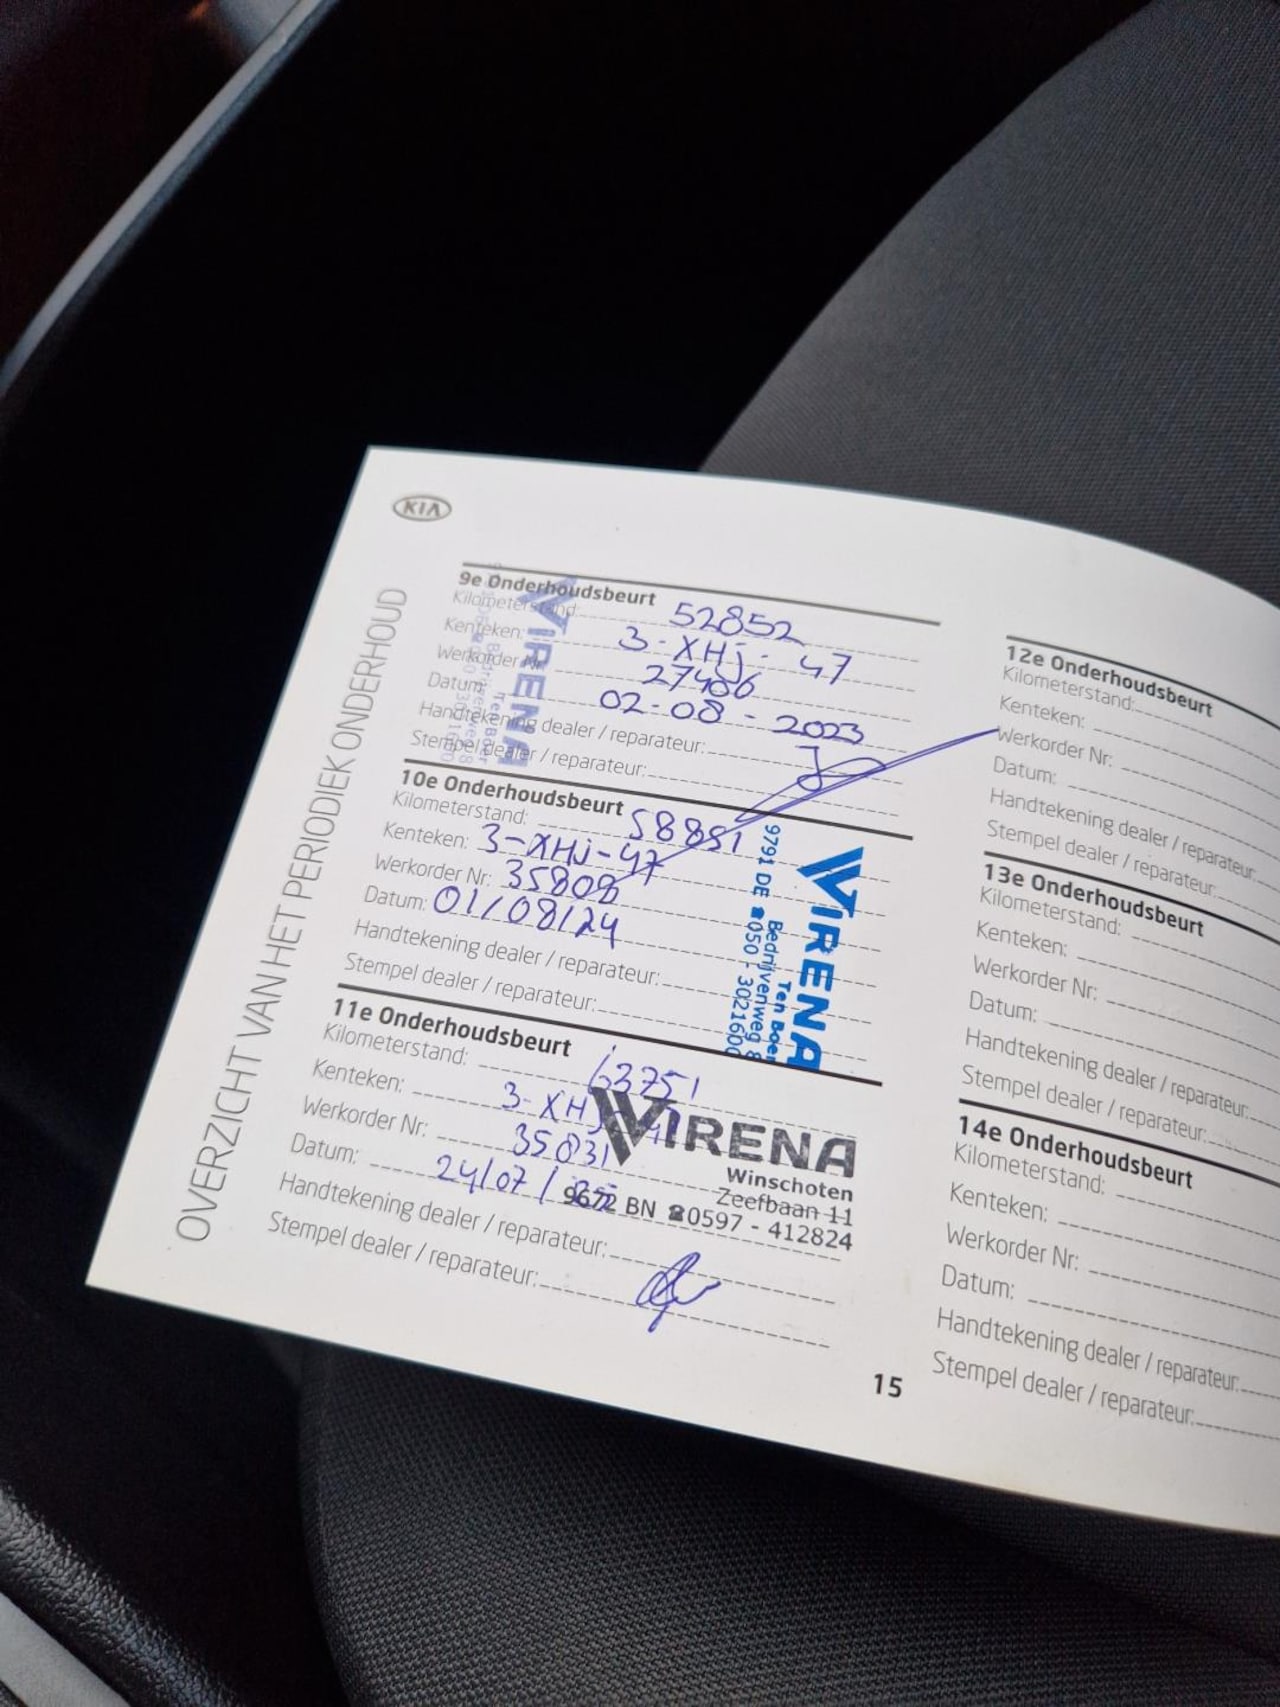 KIA
OVERZICHT VAN HET PERIODIEK ONDERHOUD
9e Onderhoudsbeurt
Kilometerstand: 52852
Kenteken: 3-XHJ-47
Werkorder Nr: 27486
Datum: 02-08-2023
Handtekening dealer / reparateur:
Stempel dealer / reparateur:
VIRENA
Ten Boer
Bedrijvenweg 8
10e Onderhoudsbeurt
Kilometerstand: 58851
Kenteken: 3-XHJ-47
Werkorder Nr: 35808
Datum: 01/08/24
Handtekening dealer / reparateur:
Stempel dealer / reparateur:
VIRENA
Ten Boer
Bedrijvenweg 8
9791 DE ☎050 - 3021600
11e Onderhoudsbeurt
Kilometerstand: 63751
Kenteken: 3-XHJ-47
Werkorder Nr: 35831
Datum: 24/07/
Handtekening dealer / reparateur:
Stempel dealer / reparateur:
VIRENA
Winschoten
Zeefbaan 11
9672 BN ☎0597 - 412824
15
12e Onderhoudsbeurt
Kilometerstand:
Kenteken:
Werkorder Nr:
Datum:
Handtekening dealer / reparateur:
Stempel dealer / reparateur:
13e Onderhoudsbeurt
Kilometerstand:
Kenteken:
Werkorder Nr:
Datum:
Handtekening dealer / reparateur:
Stempel dealer / reparateur:
14e Onderhoudsbeurt
Kilometerstand:
Kenteken:
Werkorder Nr:
Datum:
Handtekening dealer / reparateur:
Stempel dealer / reparateur: